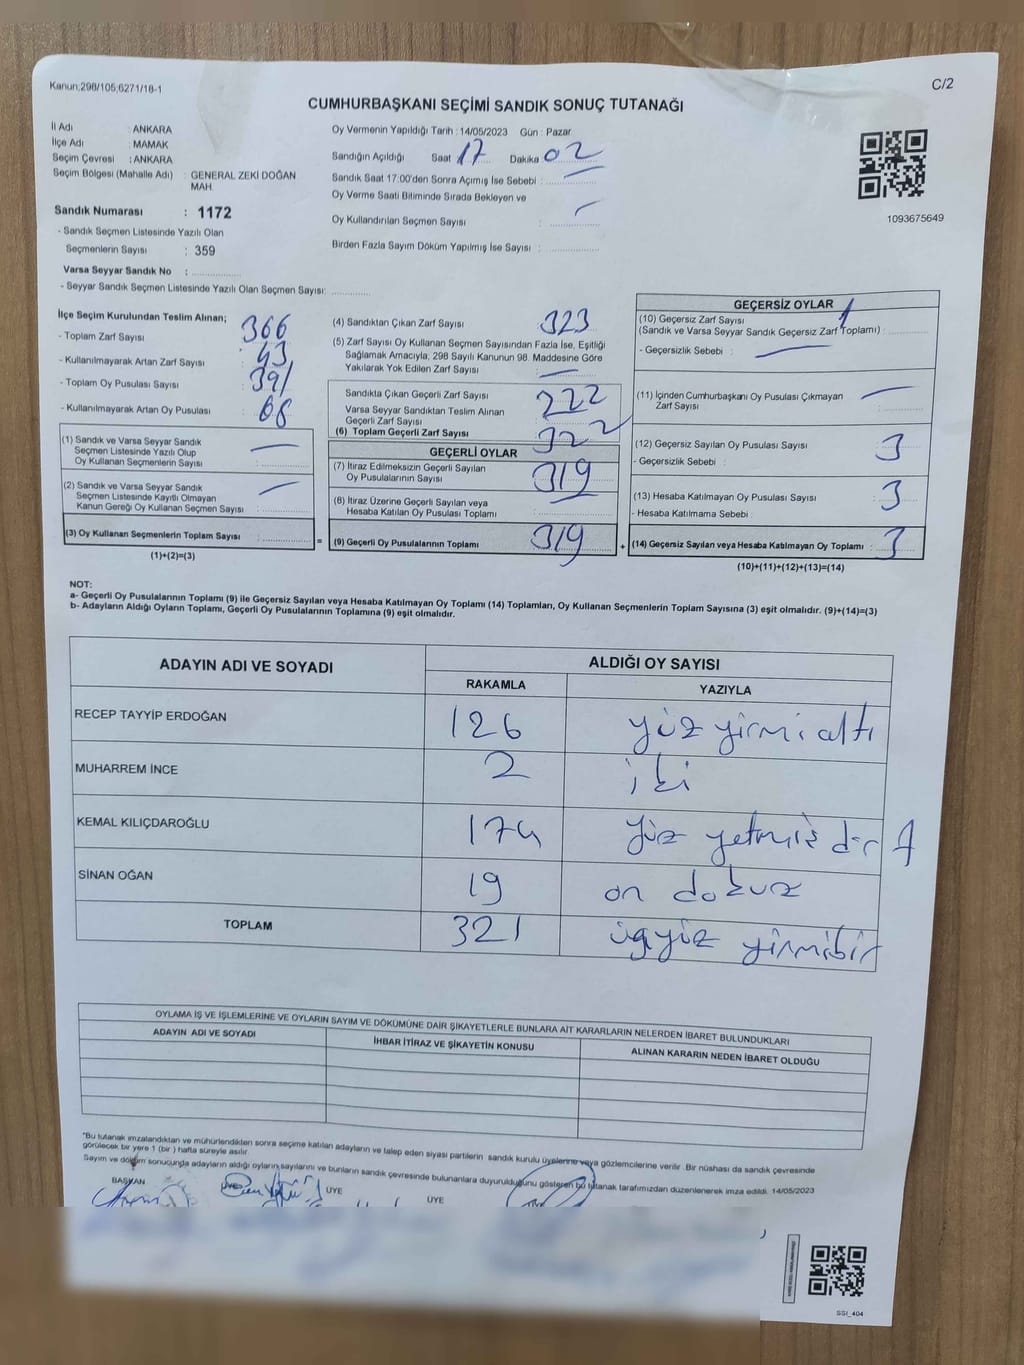 Kanun:298/105;6271/18-1
C/2
CUMHURBAŞKANI SEÇİMİ SANDIK SONUÇ TUTANAĞI
İl Adı : ANKARA
İlçe Adı : MAMAK
Seçim Çevresi : ANKARA
Seçim Bölgesi (Mahalle Adı) : GENERAL ZEKİ DOĞAN MAH.
Sandık Numarası : 1172
- Sandık Seçmen Listesinde Yazılı Olan
Seçmenlerin Sayısı : 359
Varsa Seyyar Sandık No :
- Seyyar Sandık Seçmen Listesinde Yazılı Olan Seçmen Sayısı:
Oy Vermenin Yapıldığı Tarih : 14/05/2023 Gün : Pazar
Sandığın Açıldığı Saat 17 Dakika 02
Sandık Saat 17:00'den Sonra Açımış İse Sebebi :
Oy Verme Saati Bitiminde Sırada Bekleyen ve
Oy Kullandırılan Seçmen Sayısı :
Birden Fazla Sayım Döküm Yapılmış İse Sayısı :
1093675649
İlçe Seçim Kurulundan Teslim Alınan;
- Toplam Zarf Sayısı : 366
- Kullanılmayarak Artan Zarf Sayısı : 43
- Toplam Oy Pusulası Sayısı : 391
- Kullanılmayarak Artan Oy Pusulası : 68
(1) Sandık ve Varsa Seyyar Sandık
Seçmen Listesinde Yazılı Olup
Oy Kullanan Seçmenlerin Sayısı :
(2) Sandık ve Varsa Seyyar Sandık
Seçmen Listesinde Kayıtlı Olmayan
Kanun Gereği Oy Kullanan Seçmen Sayısı :
(3) Oy Kullanan Seçmenlerin Toplam Sayısı : =
(1)+(2)=(3)
(4) Sandıktan Çıkan Zarf Sayısı : 323
(5) Zarf Sayısı Oy Kullanan Seçmen Sayısından Fazla İse, Eşitliği
Sağlamak Amacıyla, 298 Sayılı Kanunun 98. Maddesine Göre
Yakılarak Yok Edilen Zarf Sayısı :
Sandıkta Çıkan Geçerli Zarf Sayısı : 222
Varsa Seyyar Sandıktan Teslim Alınan
Geçerli Zarf Sayısı :
(6) Toplam Geçerli Zarf Sayısı : 322
GEÇERLİ OYLAR
(7) İtiraz Edilmeksizin Geçerli Sayılan
Oy Pusulalarının Sayısı : 319
(8) İtiraz Üzerine Geçerli Sayılan veya
Hesaba Katılan Oy Pusulası Toplamı :
(9) Geçerli Oy Pusulalarının Toplamı : 319 +
GEÇERSİZ OYLAR
(10) Geçersiz Zarf Sayısı 1
(Sandık ve Varsa Seyyar Sandık Geçersiz Zarf Toplamı) :
- Geçersizlik Sebebi :
(11) İçinden Cumhurbaşkanı Oy Pusulası Çıkmayan
Zarf Sayısı :
(12) Geçersiz Sayılan Oy Pusulası Sayısı : 3
- Geçersizlik Sebebi :
(13) Hesaba Katılmayan Oy Pusulası Sayısı : 3
- Hesaba Katılmama Sebebi :
(14) Geçersiz Sayılan veya Hesaba Katılmayan Oy Toplamı : 3
(10)+(11)+(12)+(13)=(14)
NOT:
a- Geçerli Oy Pusulalarının Toplamı (9) ile Geçersiz Sayılan veya Hesaba Katılmayan Oy Toplamı (14) Toplamları, Oy Kullanan Seçmenlerin Toplam Sayısına (3) eşit olmalıdır. (9)+(14)=(3)
b- Adayların Aldığı Oyların Toplamı, Geçerli Oy Pusulalarının Toplamına (9) eşit olmalıdır.
ADAYIN ADI VE SOYADI ALDIĞI OY SAYISI
RAKAMLA YAZIYLA
RECEP TAYYİP ERDOĞAN 126 yüz yirmi altı
MUHARREM İNCE 2 iki
KEMAL KILIÇDAROĞLU 174 yüz yetmiş dör t
SİNAN OĞAN 19 on dokuz
TOPLAM 321 üçyüz yirmibir
OYLAMA İŞ VE İŞLEMLERİNE VE OYLARIN SAYIM VE DÖKÜMÜNE DAİR ŞİKAYETLERLE BUNLARA AİT KARARLARIN NELERDEN İBARET BULUNDUKLARI
ADAYIN ADI VE SOYADI İHBAR İTİRAZ VE ŞİKAYETİN KONUSU ALINAN KARARIN NEDEN İBARET OLDUĞU
*Bu tutanak imzalandıktan ve mühürlendikten sonra seçime katılan adayların ve talep eden siyasi partilerin sandık kurulu üyelerine veya gözlemcilerine verilir. Bir nüshası da sandık çevresinde
görülecek bir yere 1 (bir) hafta süreyle asılır.
Sayım ve döküm sonucunda adayların aldığı oyların sayılarını ve bunların sandık çevresinde bulunanlara duyurulduğunu gösteren bu tutanak tarafımızdan düzenlenerek imza edildi. 14/05/2023
BAŞKAN ÜYE ÜYE ÜYE
SSI_404